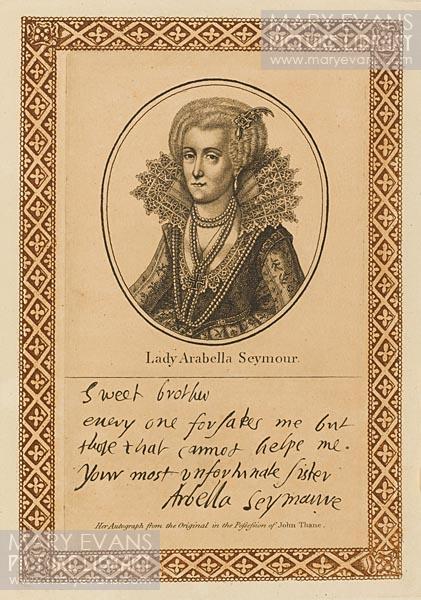 MARY EVANS
PICTURE LIBRARY
www.maryevans.com
Lady Arabella Seymour.
Sweet brother
euery one forsakes me but
those that cannot helpe me.
Your most vnfortunate sister
Arbella Seymaure
Her Autograph from the Original in the Possession of John Thane.
MARY EVANS
PICTURE LIBRARY
www.maryevans.com